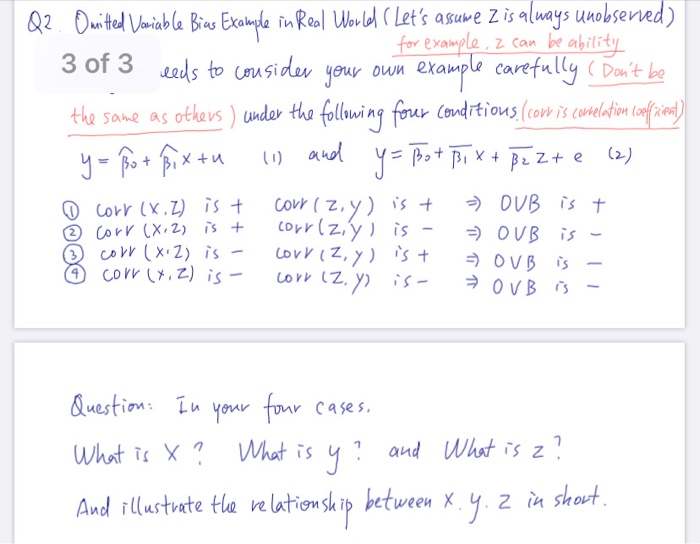 Q2. Omitted Variable Bias Example in Real World (Let's assume Z is always unobserved)
for example, z can be ability
3 of 3 eeds to consider your own example carefully (Don't be
the same as others) under the following four conditions (corr is correlation coefficient)
y = β̂0 + β̂1 x + u (1) and y = β̅0 + β̅1 x + β̅2 z + e (2)
① corr (x.z) is + corr (z,y) is + ⇒ OVB is +
② corr (x,z) is + corr (z,y) is - ⇒ OVB is -
③ corr (x,z) is - corr (z,y) is + ⇒ OVB is -
④ corr (x,z) is - corr (z.y) is - ⇒ OVB is -
Question: In your four cases.
What is x? What is y? and What is z?
And illustrate the relationship between x.y.z in short.